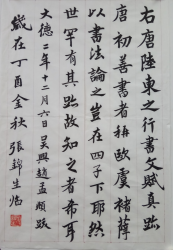 右唐陸柬之行書文賦真跡
唐初善書者稱歐虞褚薛
以書法論之豈在四子下耶然
世罕有其跡故知之者希耳
大德二年十二月六日吴興趙孟頫跋
歲在丁酉金秋張錦生临